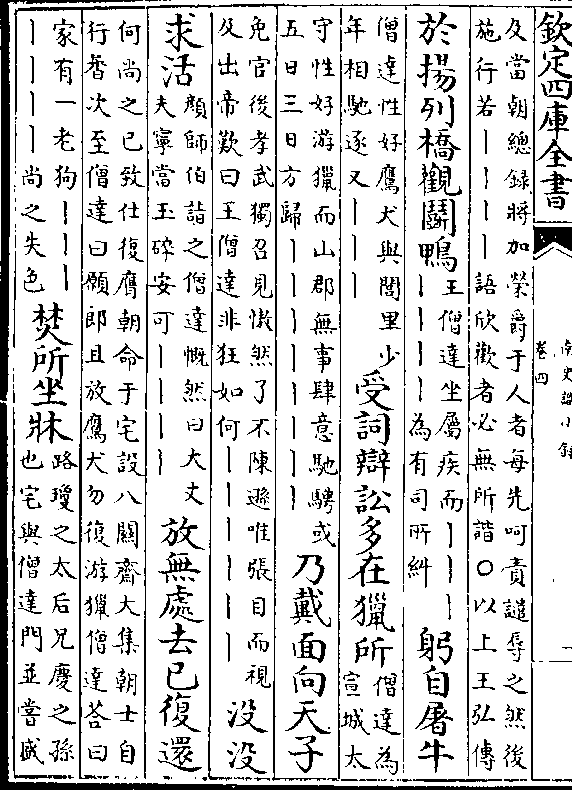 欽定四庫全書
南史識小錄
卷四
一
及當朝總録將加榮爵于人者每先呵責譴辱之然後
施行若||||語欣歡者必無所諧○以上王弘傳
於揚列橋觀鬭鴨
王僧達坐屬疾而|||
||||為有司所糾
躬自屠牛
僧達性好鷹犬與閭里少
年相馳逐又|||
受詞辯訟多在獵所
僧達為
宣城太
守性好游獵而山郡無事肆意馳騁或
五日三日方歸||||||||
乃戴面向天子
免官後孝武獨召見慠然了不陳遜唯張目而視
及出帝歎曰王僧達非狂如何||||||
没没
求活
顔師伯詣之僧達慨然曰大丈
夫寧當玉碎安可||||
放無處去已復還
何尚之已致仕復膺朝命于宅設八關齋大集朝士自
行香次至僧達曰願郎且放鷹犬勿復游獵僧達荅曰
家有一老狗|||
||||尚之失色
焚所坐牀
路瓊之太后兄慶之孫
也宅與僧達門並嘗盛